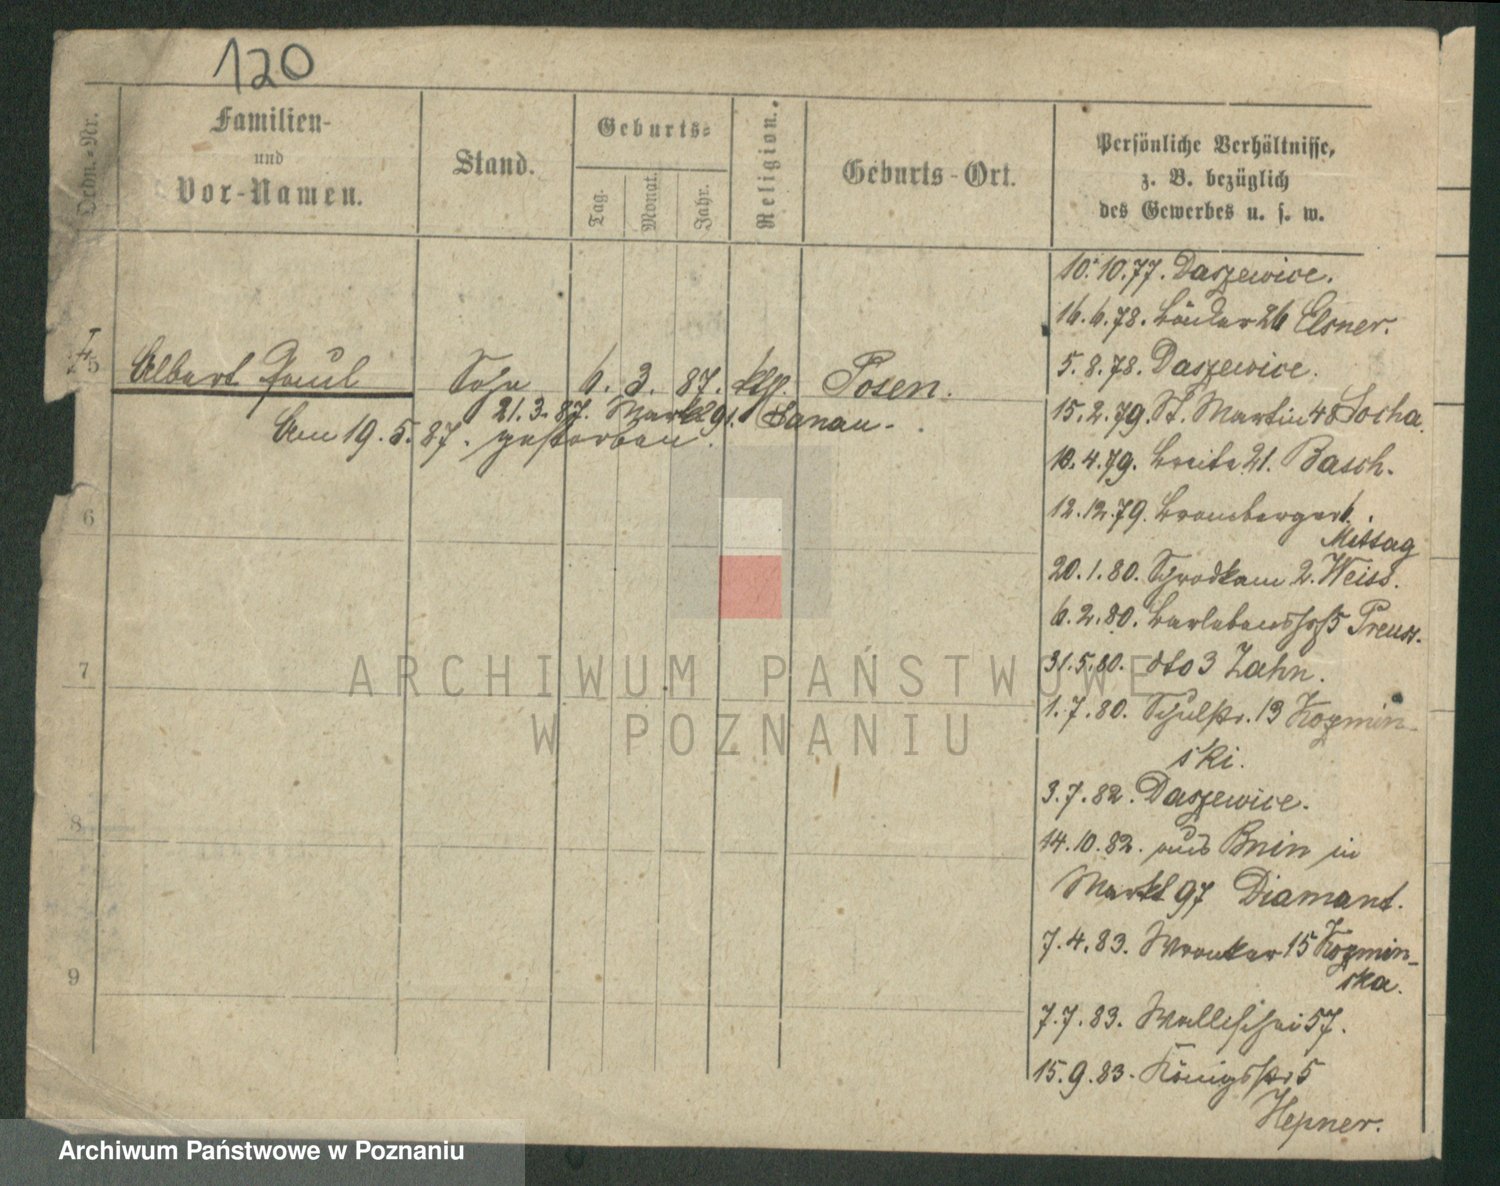 120
Ordn.-Nr.
Familien-
und
Vor-Namen.
Stand.
Geburts-
Tag.
Monat.
Jahr.
Religion.
Geburts-Ort.
Persönliche Verhältnisse,
z. B. bezüglich
des Gewerbes u. s. w.
10.10.77. Daszewice.
16.6.78. Bäcker 26 Elsner.
5.8.78. Daszewice.
5 Albert Paul Sohn 6. 3. 87. kth. Posen.
15.2.79. St. Martin 48 Socha.
21.3.87. Markt 91. Hanau.
Am 19.5.87. gestorben.
10.4.79. Breite 21. Basch.
6
12.12.79. Bromberger 6.
Mittag
20.1.80. Schrodkam 2. Weiss.
6.2.80. Berlebens 5 Preuss.
7
31.5.80. dto 3 Zahn.
1.7.80. Schulstr. 13 Kozmin-
ski.
3.7.82. Daszewice.
8
14.10.82. aus Bnin in
Markt 97 Diamant.
7.4.83. Wronker 15 Kozmin-
ska.
9
7.7.83. Wallischei 57.
15.9.83. Königsstr 5
Hepner.
ARCHIWUM PAŃSTWOWE
W POZNANIU
Archiwum Państwowe w Poznaniu